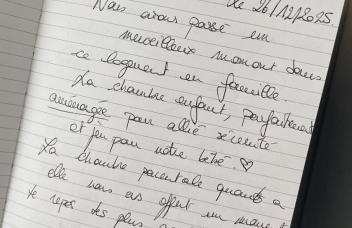 Le 26/12/2025.
Nous avons passé un
merveilleux moment dans
ce logement en famille.
La chambre enfant, parfaitement
aménagée pour allié sécurité
et jeu pour notre bébé. ♡
La chambre parentale quand à
elle nous as offert un moment
de repos des plus